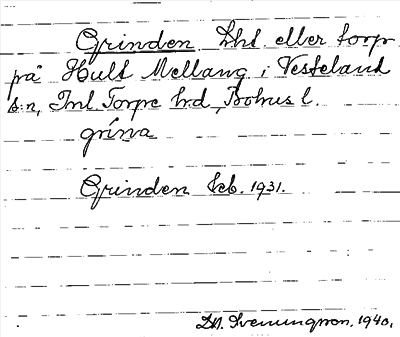 Grinden Lht eller torp
på Hult Mellang i Vesteland
s:n, Inl Torpe hrd, Bohus l.
grina
Grinden Leb. 1931.
D.A. Svenungsson. 1940.